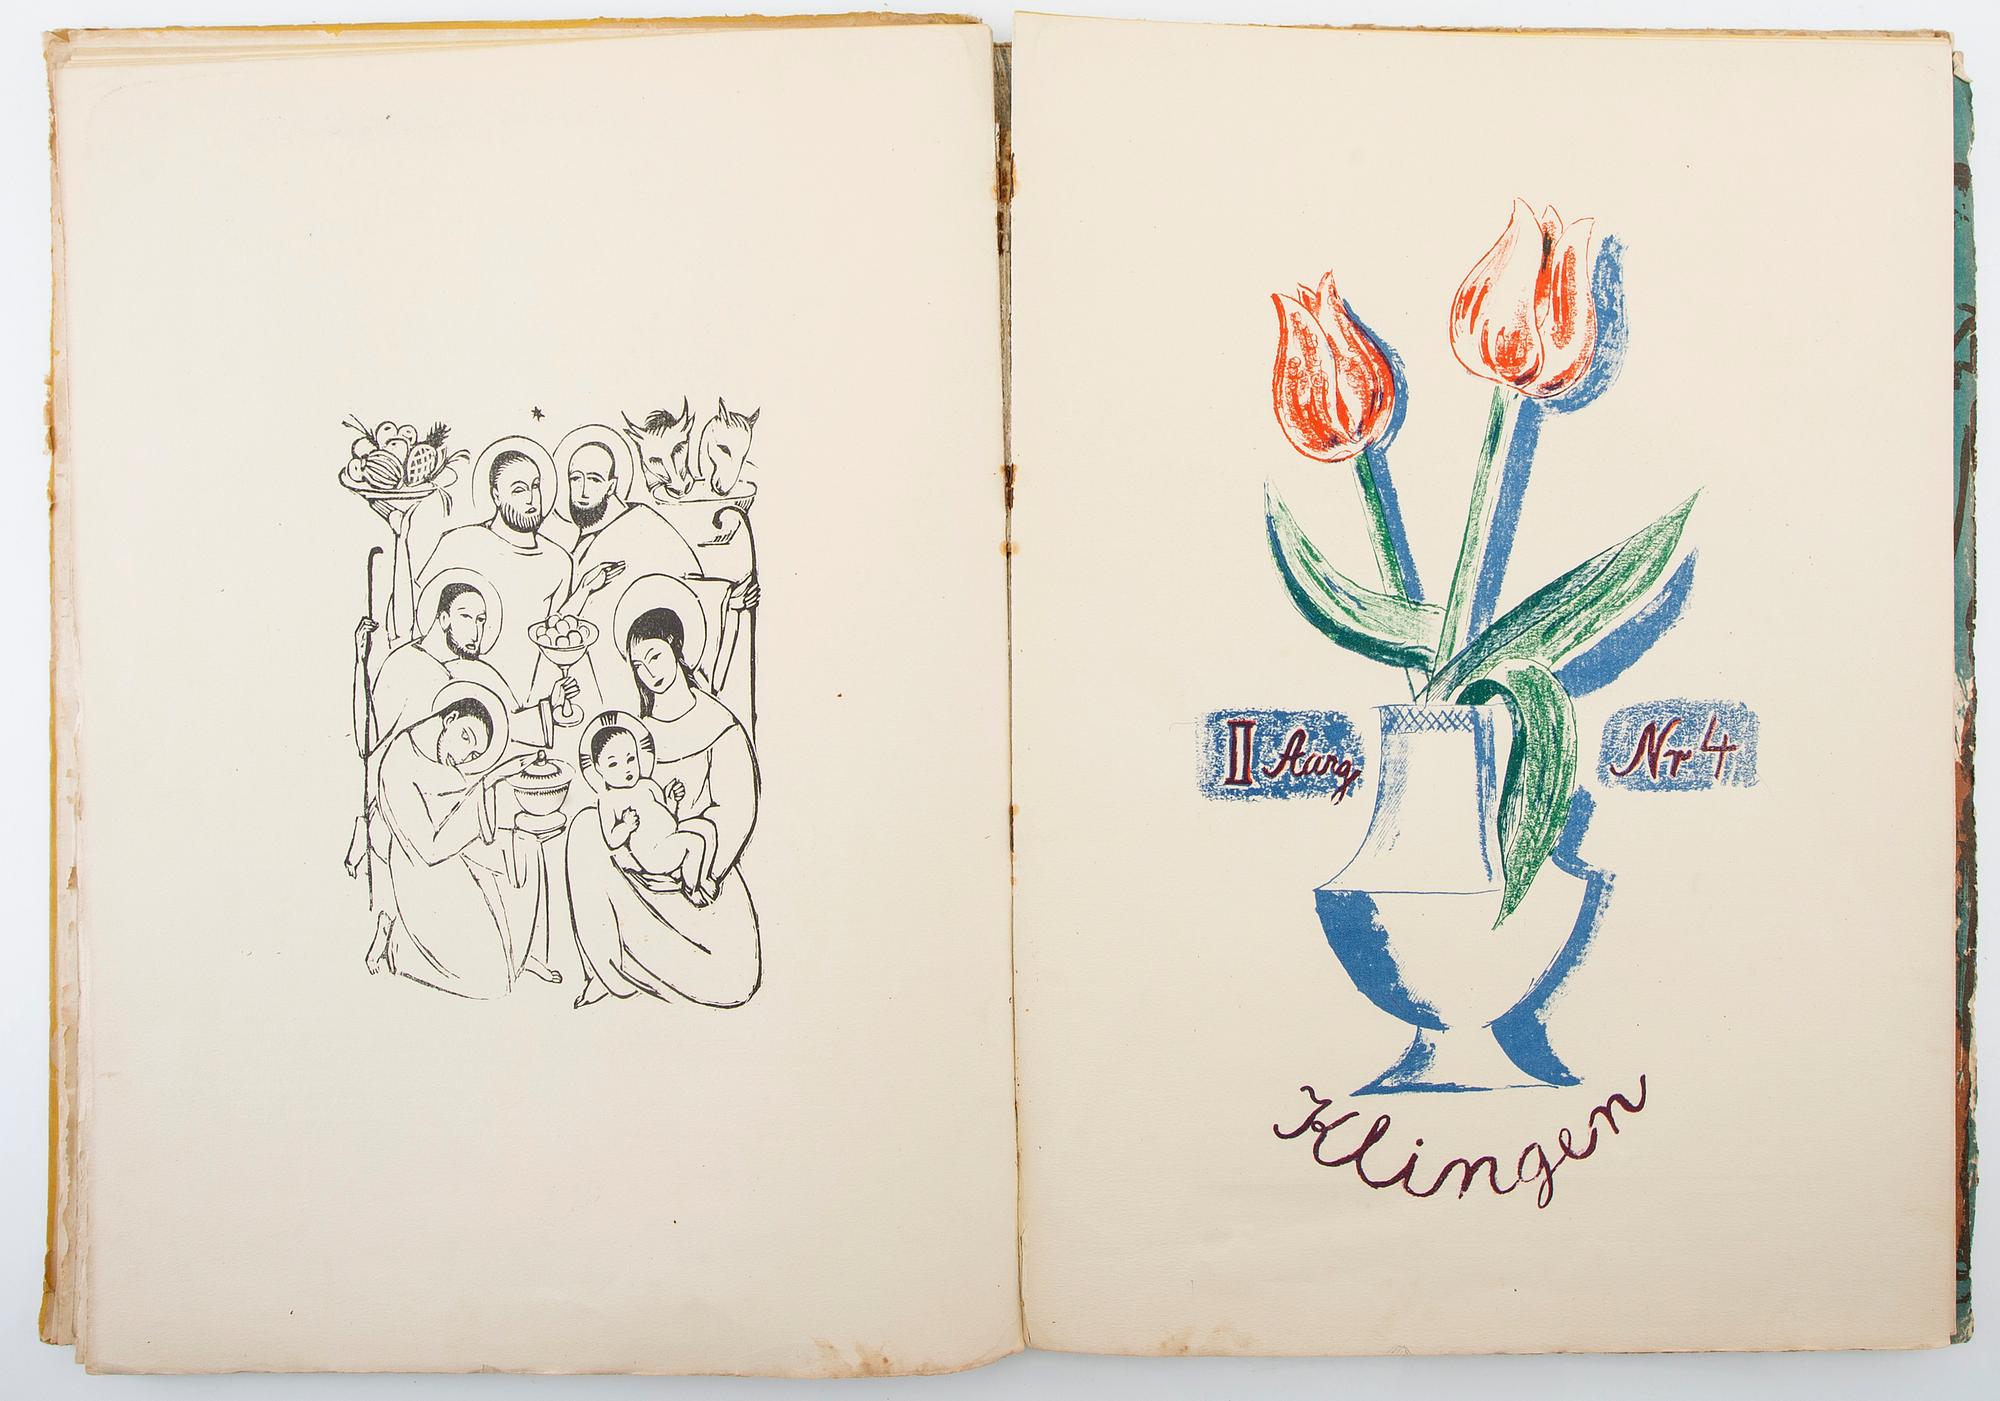 II Aarg,
Nr 4
Klingen